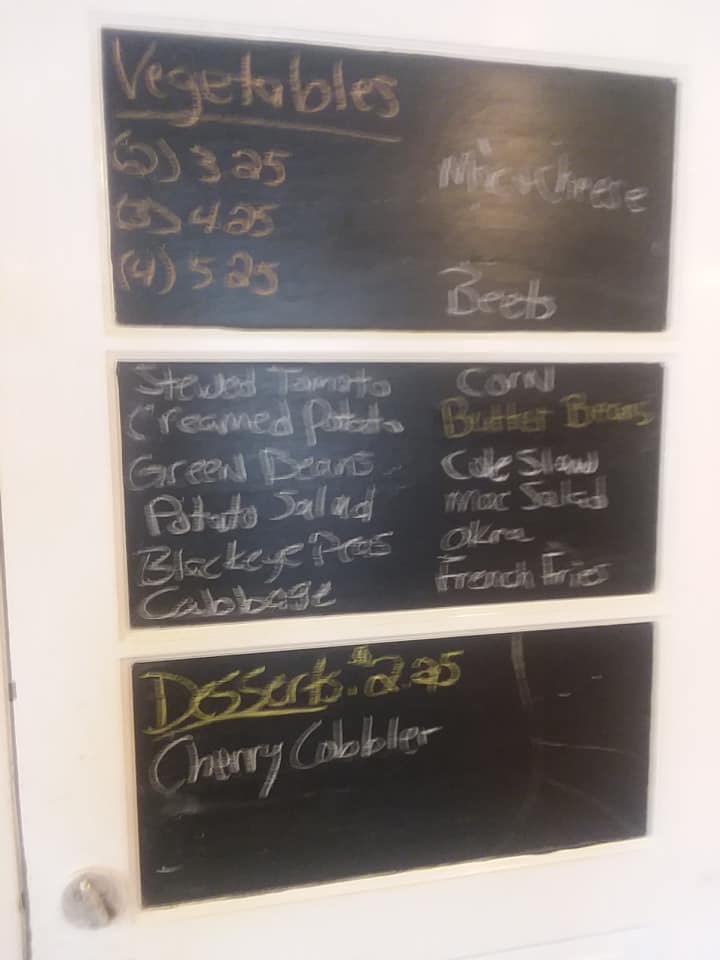 Vegetables
(2) 3 25
(3) 4 25
(4) 5 25
Mac + Cheese
Beets
Stewed Tomato
Creamed Potato
Green Beans
Potato Salad
Blackeye Peas
Cabbage
Corn
Butter Beans
Cole Slaw
Mac Salad
Okra
French Fries
Desserts. $2.25
Cherry Cobbler